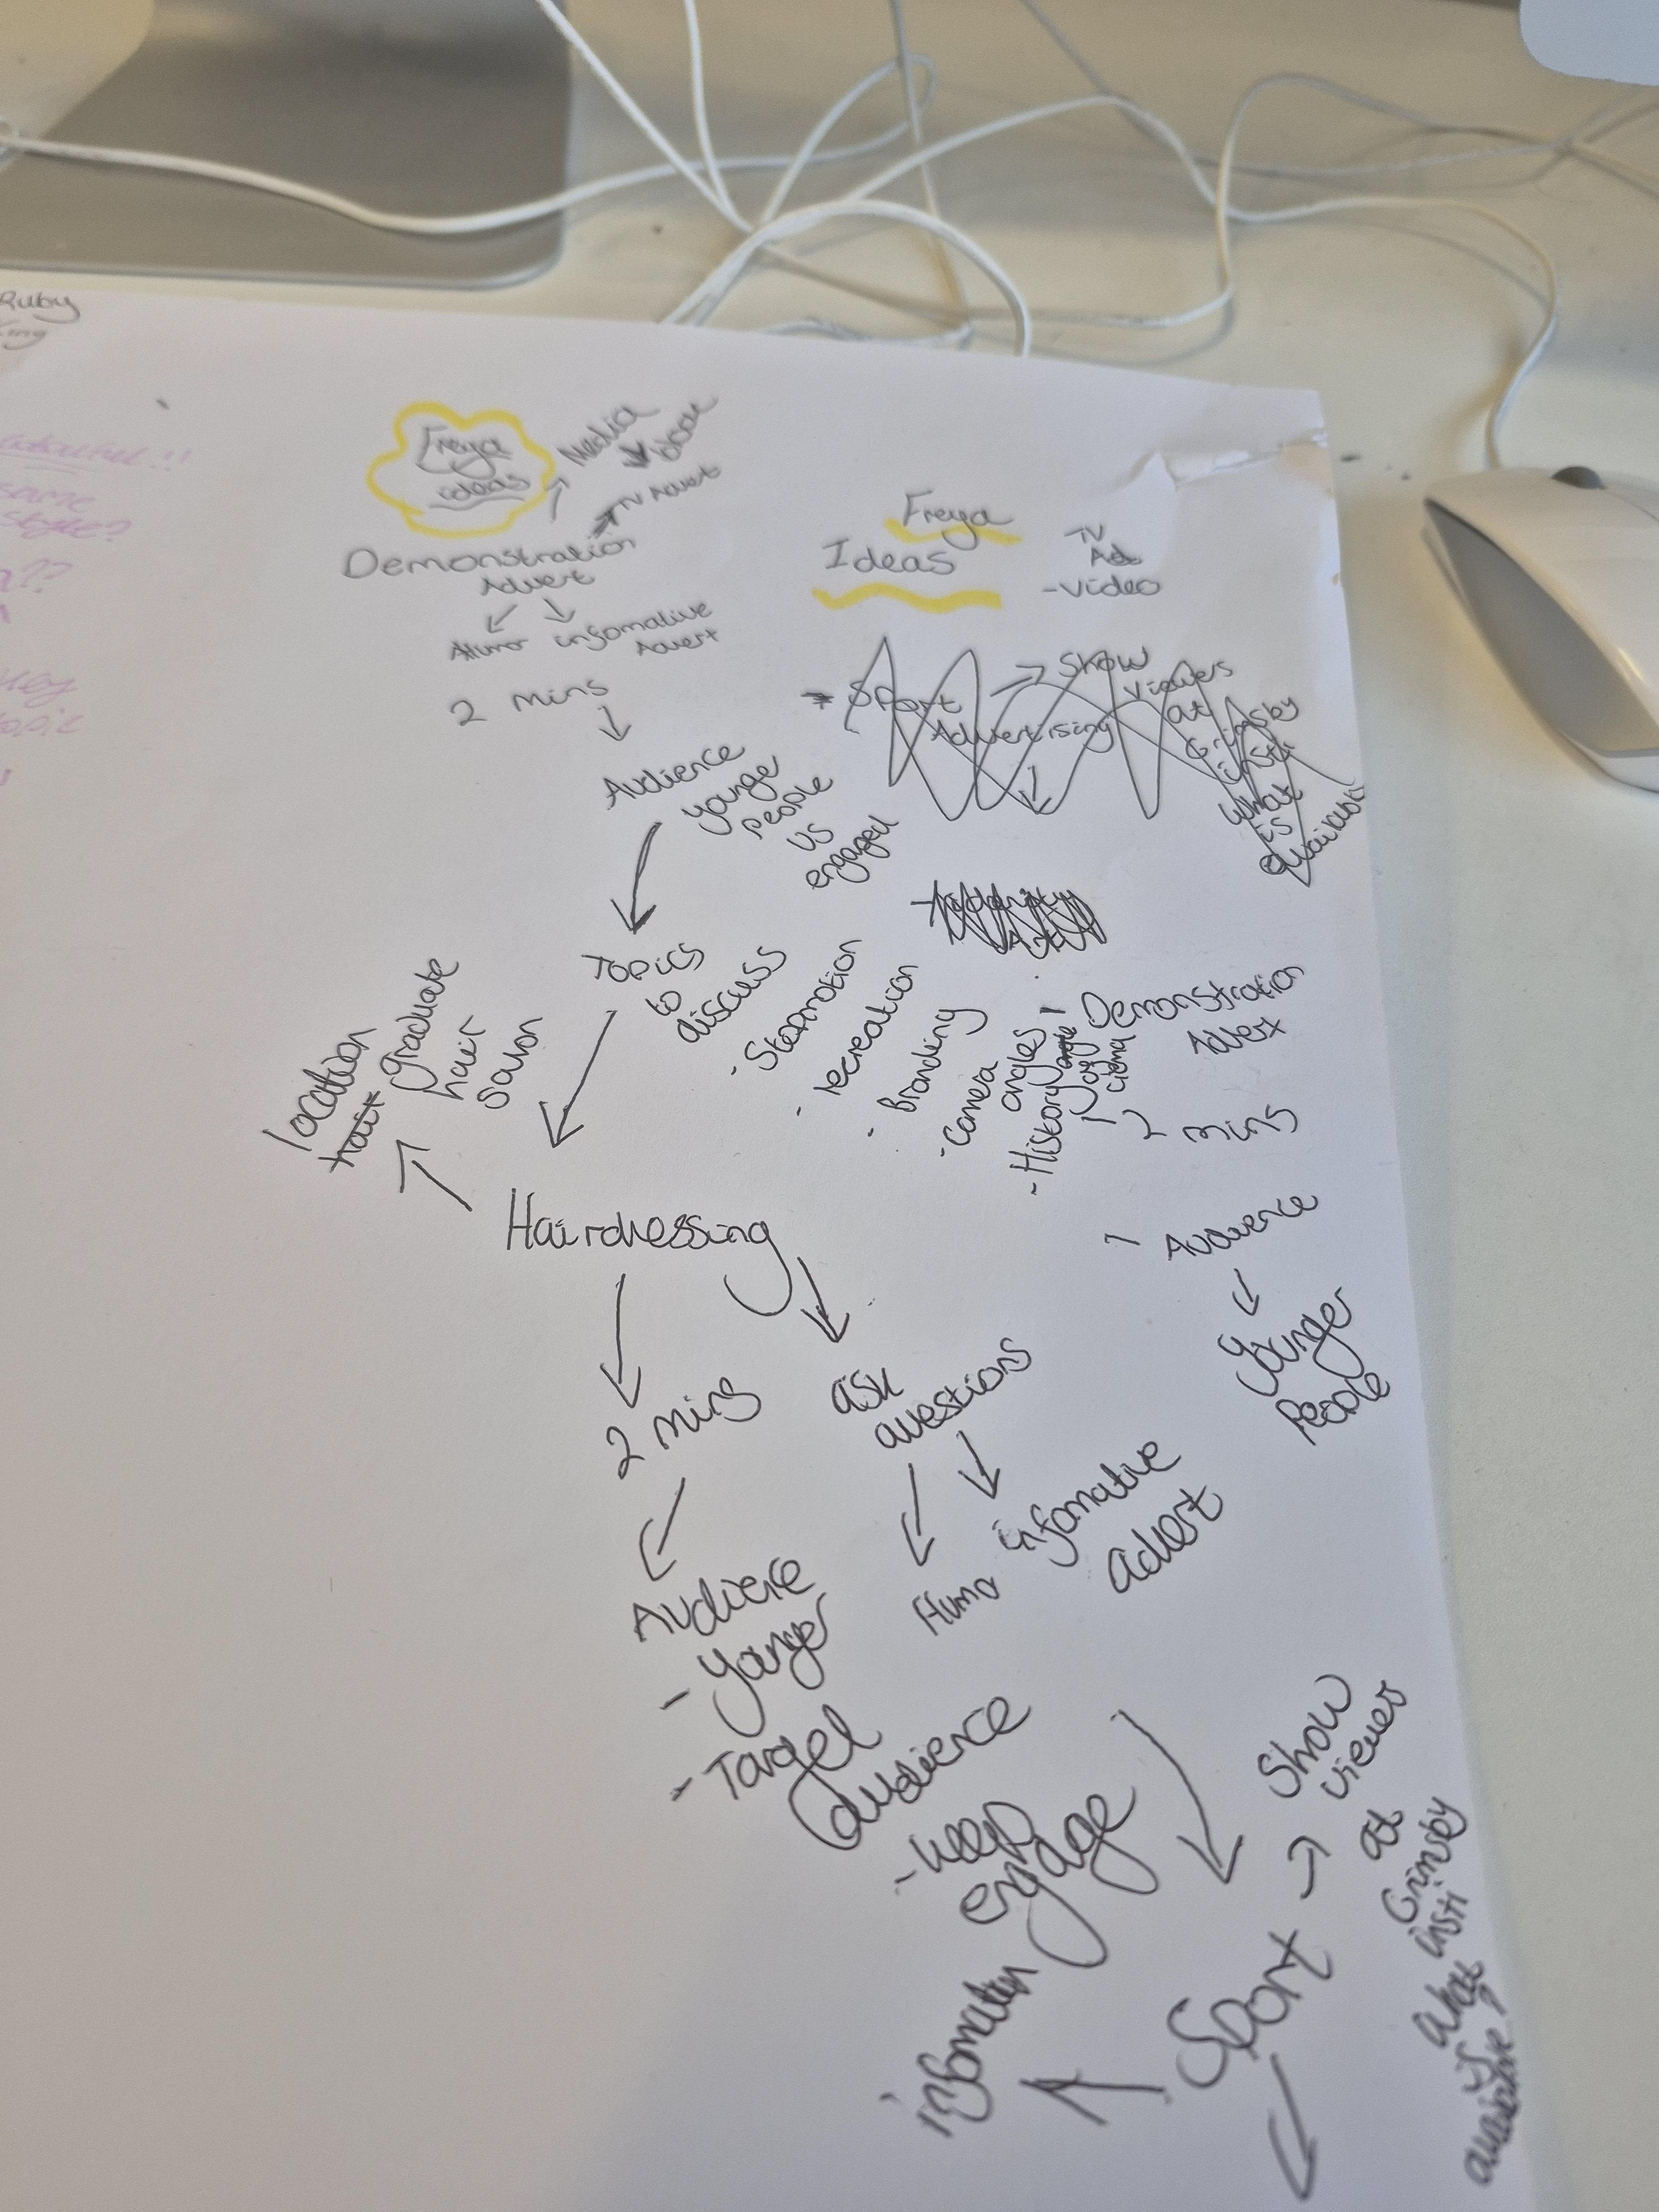 Ruby
same
style?
Freya
ideas
Media
idea
TV Advert
Demonstration
Advert
infomative
Advert
2 mins
Audience
younge
people
us
engaged
Topics
to
discuss
- Stopmotion
- recreation
- Branding
- camera
angles
- History
location
hair
graduate
hair
salon
Hairdressing
2 mins
Audience
- Younger
- Target
audience
- keep
engage
ask
questions
Humor
infomative
advert
Freya
Ideas
TV
Ad
- Video
Sport
Advertising
Show
viewers
at
Grimsby
insti
what
is
Demonstration
Advert
2 mins
- Audience
Younger
People
Sport
infomation
Show
viewers
at
Grimsby
insti
what
is